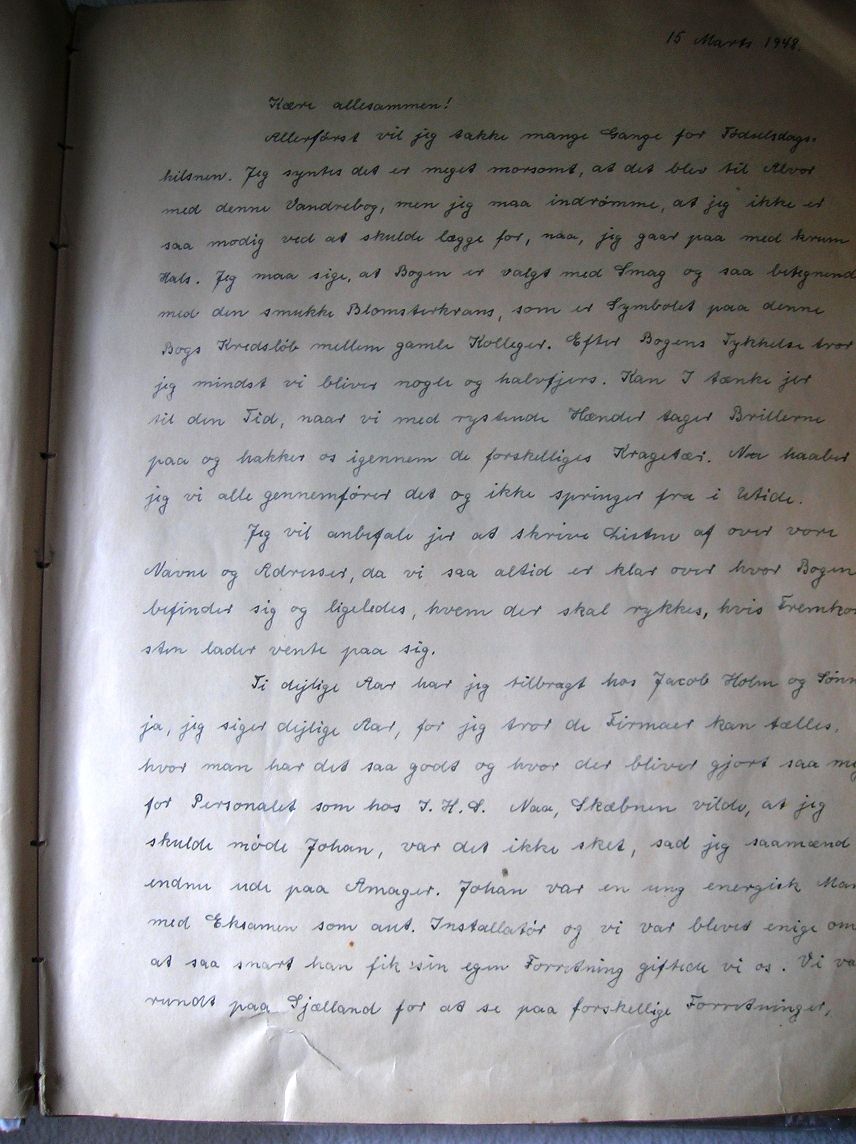 15 Marts 1948.
Kære allesammen!
Allerførst vil jeg takke mange Gange for Fødselsdags-
hilsnen. Jeg syntes det er meget morsomt, at det blev til Alvor
med denne Vandrebog, men jeg maa indrømme, at jeg ikke er
saa modig ved at skulde lægge for, naa, jeg gaar paa med krum
Hals. Jeg maa sige, at Bogen er valgt med Smag og saa betegnend
med den smukke Blomsterkrans, som er Symbolet paa denne
Bogs Kredsløb mellem gamle Kolleger. Efter Bogens Tykkelse tror
jeg mindst vi bliver nogle og halvfjers. Kan I tænke jer
til den Tid, naar vi med rystende Hænder tager Brillerne
paa og hakker os igennem de forskelliges Kragetær. Nu haaber
jeg vi alle gennemfører det og ikke springer fra i Utide.
Jeg vil anbefale jer at skrive Listen af over vore
Navne og Adresser, da vi saa altid er klar over hvor Bogen
befinder sig og ligeledes, hvem der skal rykkes, hvis Fremkom
sten lader vente paa sig.
Ti dejlige Aar har jeg tilbragt hos Jacob Holm og Sønn
ja, jeg siger dejlige Aar, for jeg tror de Firmaer kan tælles,
hvor man har det saa godt og hvor der bliver gjort saa meg
for Personalet som hos J.H.S. Naa, Skæbnen vilde, at jeg
skulde møde Johan, var det ikke sket, sad jeg saamænd
endnu ude paa Amager. Johan var en ung energisk Man
med Eksamen som aut. Installatør og vi var blevet enige om
at saa snart han fik sin egen Forretning giftede vi os. Vi va
rundt paa Sjælland for at se paa forskellige Forretninger,